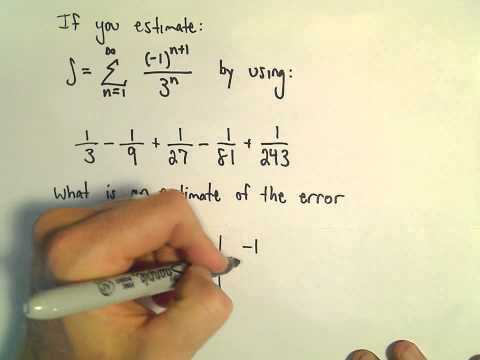 If you estimate:
S = ∞ ∑ n=1 (-1)^(n+1) / 3^n by using:
1/3 - 1/9 + 1/27 - 1/81 + 1/243
What is an estimate of the error
| -1